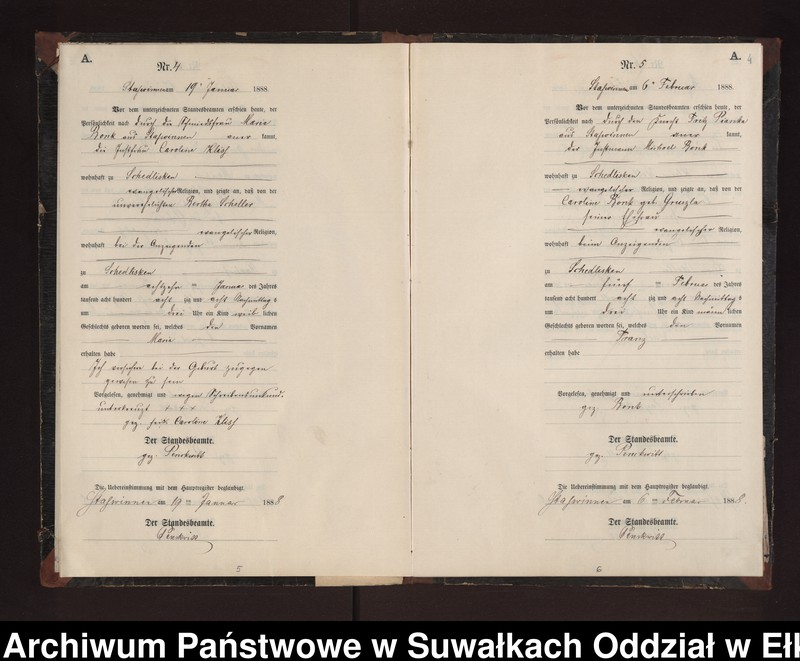 A.
Nr. 4
Staßwinnen am 19ten Januar 1888.
Vor dem unterzeichneten Standesbeamten erschien heute, der
Persönlichkeit nach durch die Schmiedtfrau Marie
Bonk aus Staßwinnen kannt,
die Instfrau Caroline
wohnhaft zu Schedlisken
evangelischer Religion, und zeigte an, daß von der
unverehelichten Bertha Scheller
evangelischer Religion,
wohnhaft bei der Anzeigenden
zu Schedlisken
am achtzehn ten Januar des Jahres
tausend acht hundert acht zig und acht Nachmittags
um drei Uhr ein Kind weib lichen
Geschlechts geboren worden sei, welches den Vornamen
Marie
erhalten habe
Ich versichere bei der Geburt zugegen
gewesen zu sein
Vorgelesen, genehmigt und wegen Schreibensunkund.
unterkreuzt + + +
gez. Caroline
Der Standesbeamte.
gez.
Die Uebereinstimmung mit dem Hauptregister beglaubigt.
Staßwinnen am 19ten Januar 1888
Der Standesbeamte.
5
A.
4
Nr. 5
Staßwinnen am 6ten Februar 1888.
Vor dem unterzeichneten Standesbeamten erschien heute, der
Persönlichkeit nach durch den Knecht Fritz
aus Staßwinnen kannt,
der Instmann Michael Bonk
wohnhaft zu Schedlisken
evangelischer Religion, und zeigte an, daß von der
Caroline Bonk geb
seiner Ehefrau
evangelischer Religion,
wohnhaft beim Anzeigenden
zu Schedlisken
am fünf ten Februar des Jahres
tausend acht hundert acht zig und acht Nachmittags
um drei Uhr ein Kind männ lichen
Geschlechts geboren worden sei, welches den Vornamen
Franz
erhalten habe
Vorgelesen, genehmigt und unterschrieben
gez. Bonk
Der Standesbeamte.
gez.
Die Uebereinstimmung mit dem Hauptregister beglaubigt.
Staßwinnen am 6ten Februar 1888.
Der Standesbeamte.
6
Archiwum Państwowe w Suwałkach Oddział w Ełk